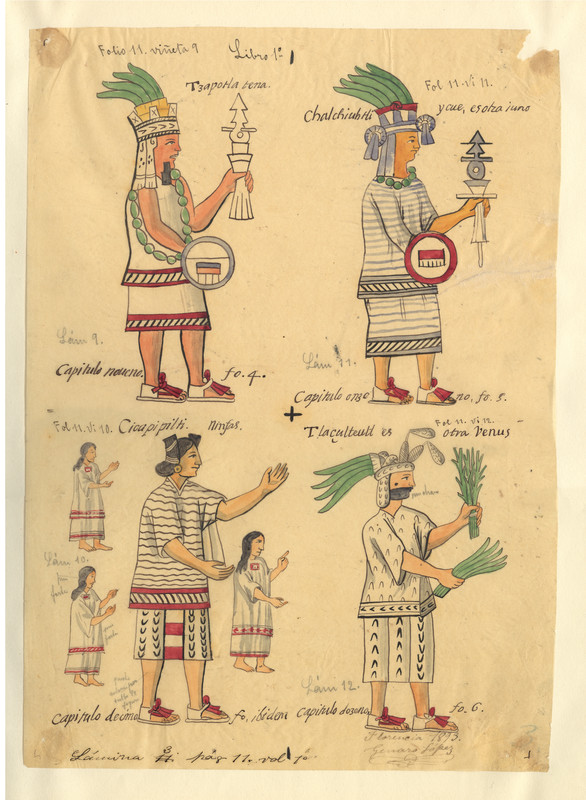 Folio 11. viñeta 9
Libro 1º
Tzapotla tena.
Fol 11. Vi 11.
Chalchiuhtli ycue, es otra juno
Lám 9.
Capitulo noueno. fo. 4.
Lám 11.
Capitulo onzeno, fo. 5.
Fol. 11. Vi 10. Cicuapipilti. Ninfas.
Fol. 11. Vi. 12.
Tlaçulteutl es otra Venus
Lám 10.
Capitulo decimo fo, ibidem
Lám 12.
Capitulo dozeno, fo. 6.
Florencia 1893.
Genaro López
Lámina pág 11. vol 1º